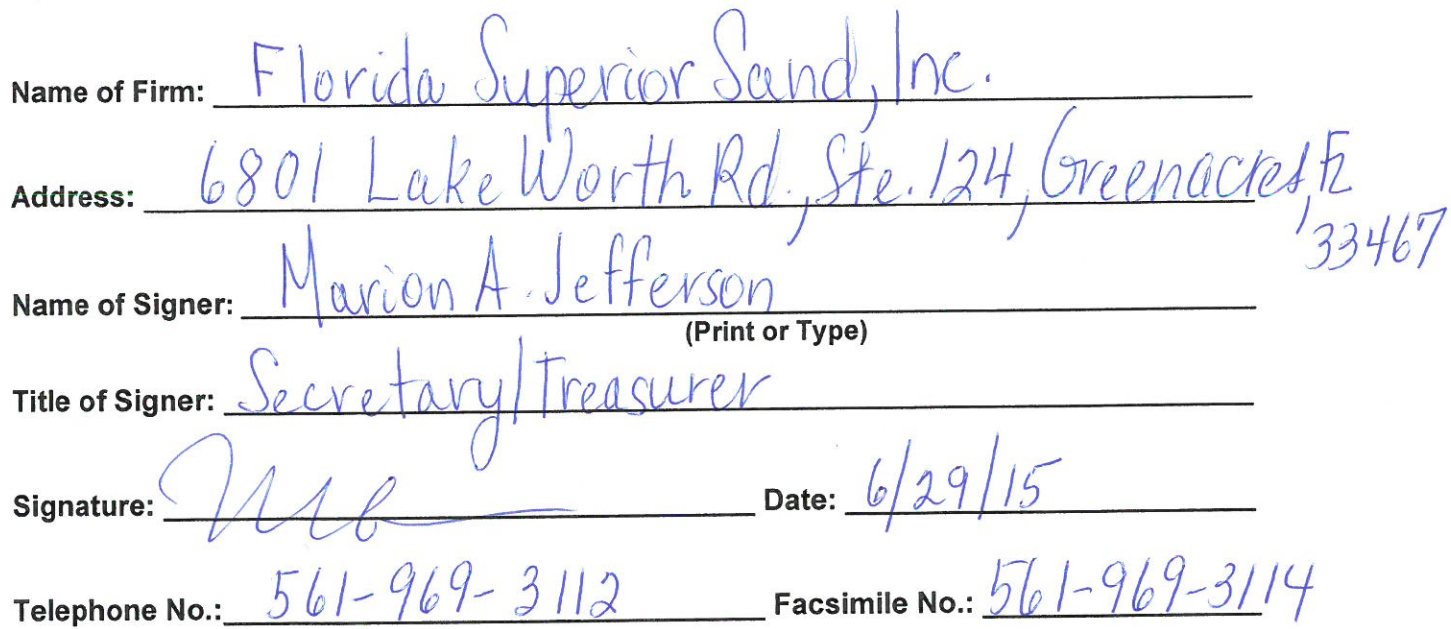 Name of Firm: Florida Superior Sand, Inc.
Address: 6801 Lake Worth Rd., Ste. 124, Greenacres, FL
33467
Name of Signer: Marion A. Jefferson
(Print or Type)
Title of Signer: Secretary/Treasurer
Signature: Date: 6/29/15
Telephone No.: 561-969-3112 Facsimile No.: 561-969-3114